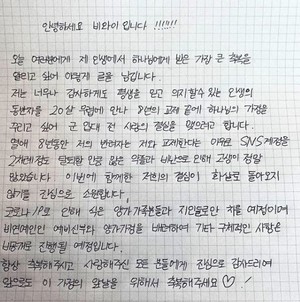 안녕하세요 비와이 입니다 !!!!!!!
오늘 여러분에게 제 인생에서 하나님에게 받은 가장 큰 축복을
알리고 싶어 이렇게 글을 남깁니다.
저는 너무나 감사하게도 평생을 믿고 의지할 수 있는 인생의
동반자를 20살 무렵에 만나 8년의 교제 끝에 하나님의 가정을
꾸리고 싶어 군 입대 전 사랑의 결실을 맺으려고 합니다.
연애 8년동안 저의 반려자는 저와 교제한다는 이유로 SNS계정을
2차례 정도 당할 만큼 많은 악플과 비난으로 인해 고생이 정말
많았습니다 이번에 함께한 저희의 결심이 화살로 돌아오지
않기를 진심으로 소원합니다.
코로나 19로 인해 식은 양가가족분들과 지인들로만 치룰 예정이며
비연예인인 예비신부와 양가가정을 배려하여 기타 구체적인 사항은
비공개로 진행될 예정입니다.
항상 축복해주시고 사랑해주신 모든 분들에게 진심으로 감사드리며
앞으로도 이 가정의 앞날을 위해서 축복해주세요 ♡ !